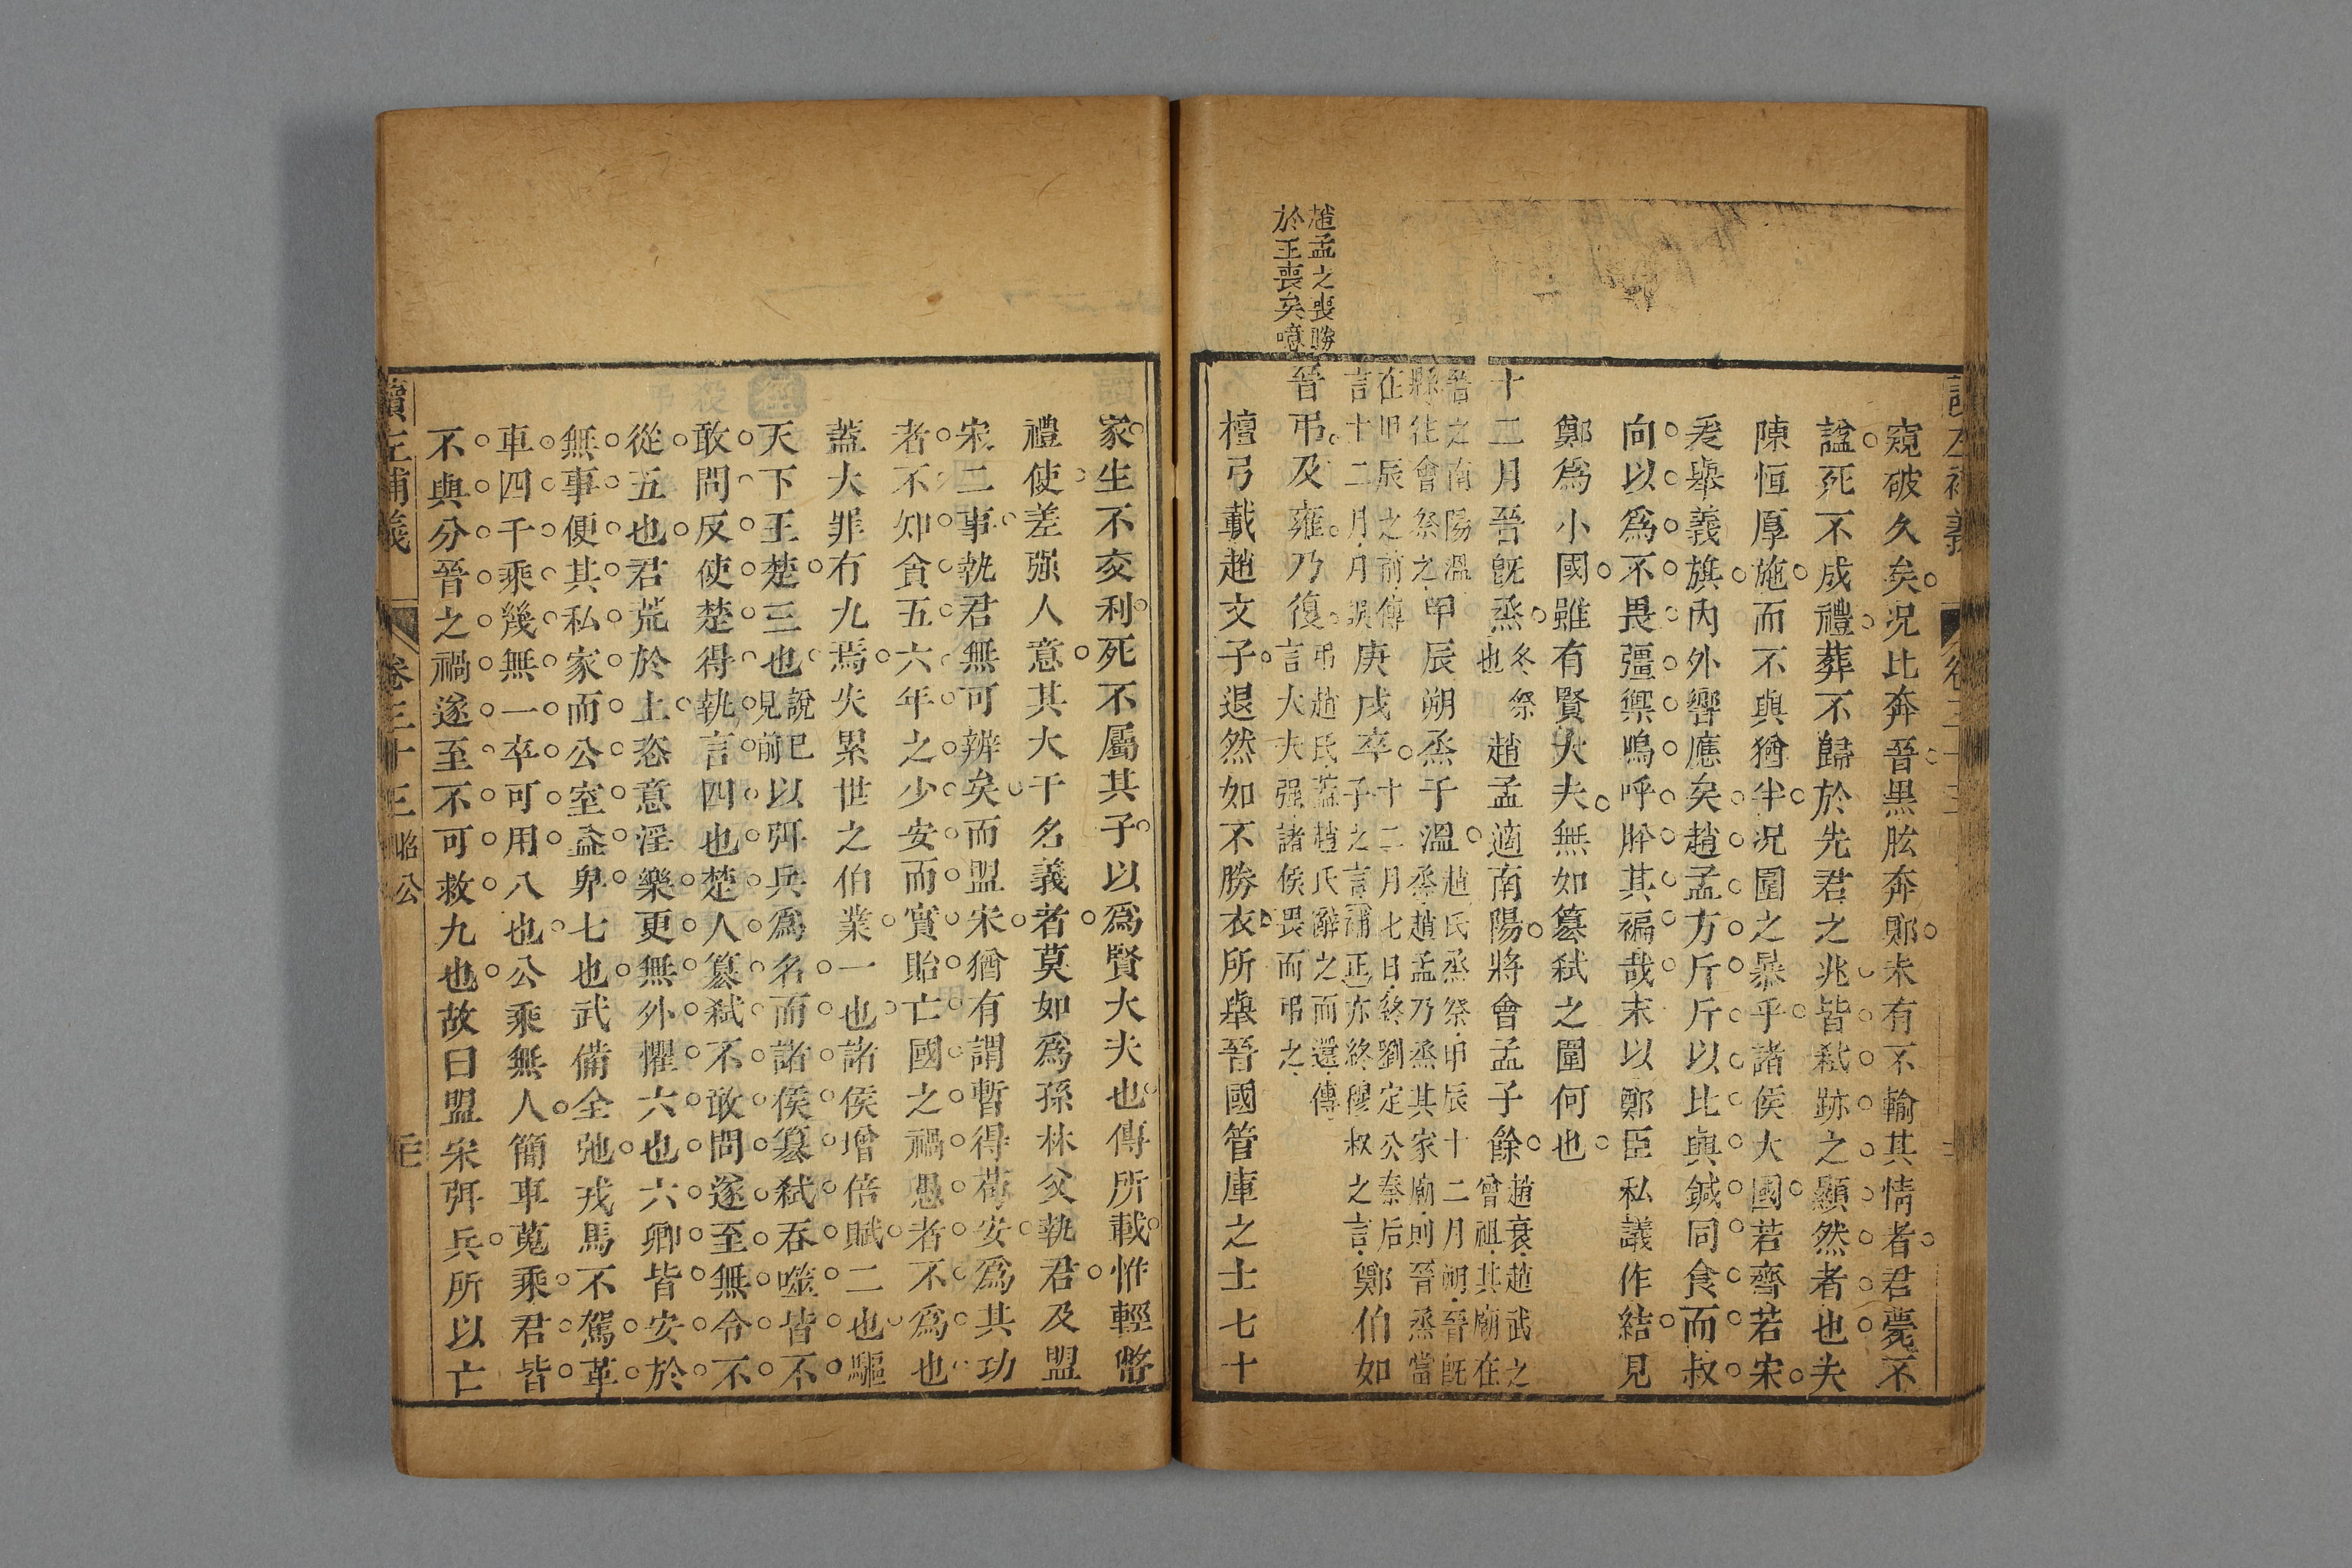 讀左補義
卷三十三
窺破久矣况比奔晉黒肱奔鄭未有不輸其情者君薨不
諡死不成禮葬不歸於先君之兆皆弑跡之顯然者也夫
陳恒厚施而不與猶半况圍之暴乎諸侯大國若齊若宋
爰舉義旗內外響應矣趙孟方斤斤以比與鍼同食而叔
向以爲不畏彊禦嗚呼胙其褊哉末以鄭臣私議作結見
鄭爲小國雖有賢大夫無如簒弑之圍何也
十二月晉旣烝冬祭也趙孟適南陽將會孟子餘趙衰趙武之曾祖其廟在
晉之南陽溫縣往會祭之甲辰朔烝于溫趙氏烝祭甲辰十二月朔晉旣烝趙孟乃烝其家廟則晉烝當
在甲辰之前傳言十二月月誤庚戌卒十二月七日終劉定公秦后子之言補正亦終穆叔之言鄭伯如
晉弔及雍乃復弔趙氏蓋趙氏辭之而還傳言大夫强諸侯畏而弔之
趙孟之喪勝
於王喪矣噫
檀弓載趙文子退然如不勝衣所舉晉國管庫之士七十
家生不交利死不屬其子以爲賢大夫也傳所載惟輕幣
禮使差强人意其大干名義者莫如爲孫林父執君及盟
宋二事執君無可辨矣而盟宋猶有謂暫得苟安爲其功
者不知貪五六年之少安而實貽亡國之禍愚者不爲也
蓋大罪有九焉失累世之伯業一也諸侯增倍賦二也驅
天下王楚三也說已見前以弭兵爲名而諸侯簒弑吞噬皆不
敢問反使楚得執言四也楚人簒弑不敢問遂至無令不
從五也君荒於上恣意淫樂更無外懼六也六卿皆安於
無事便其私家而公室益卑七也武備全弛戎馬不駕革
車四千乘幾無一卒可用八也公乘無人簡車蒐乘君皆
不與分晉之禍遂至不可救九也故曰盟宋弭兵所以亡
讀左補義
卷三十三
昭公